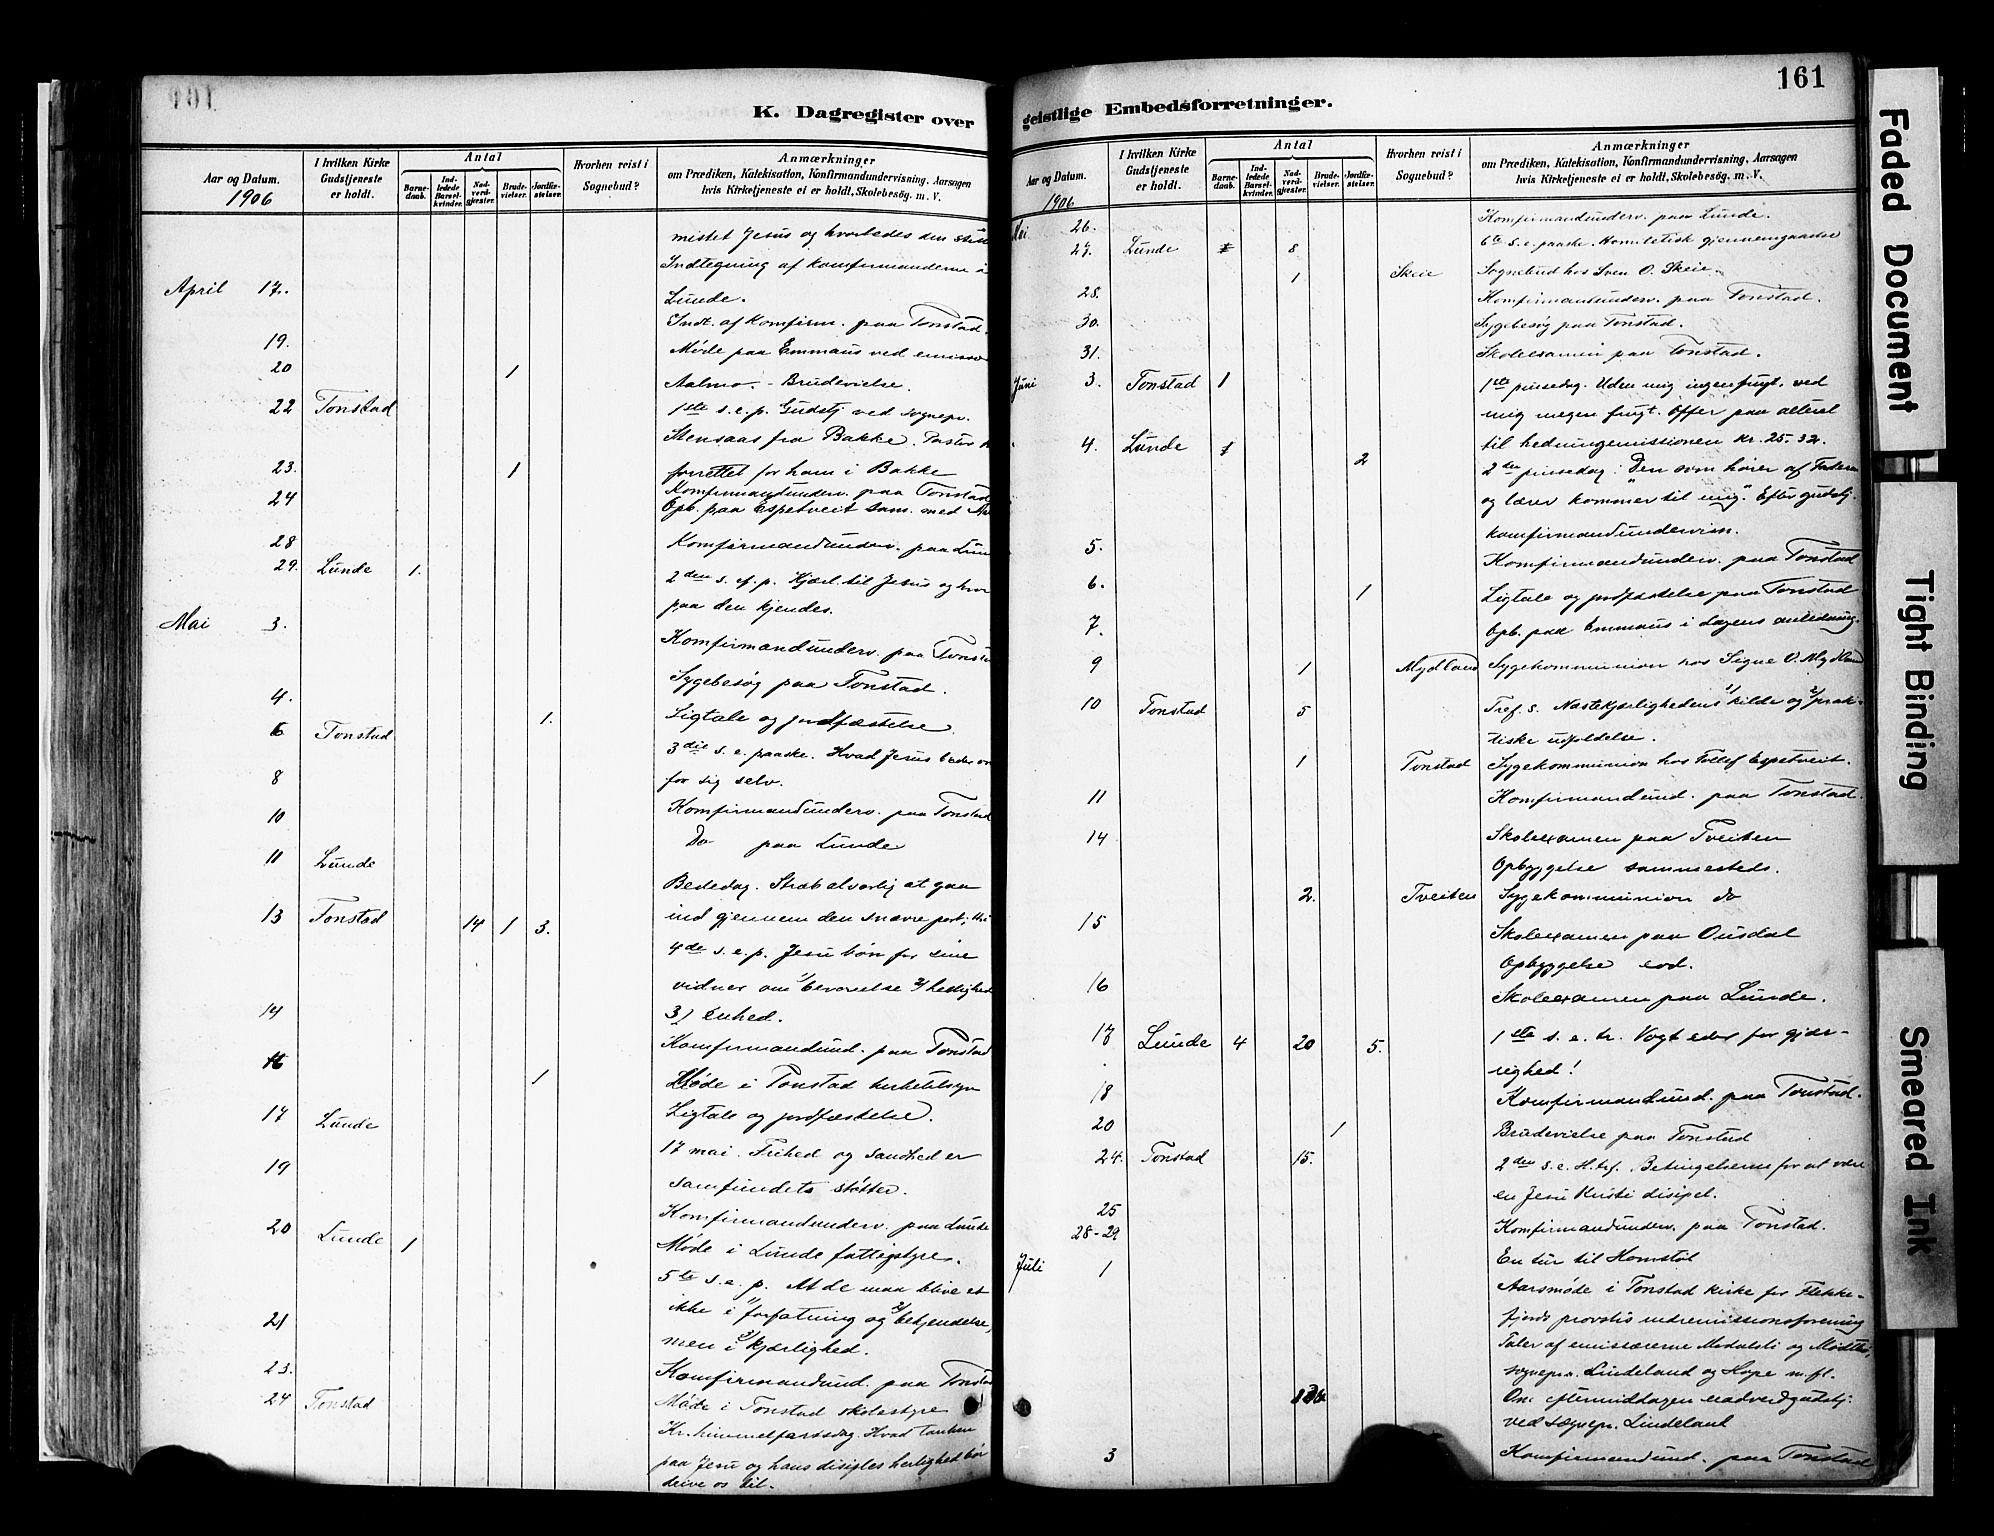 161
K. Dagregister over
Aar og Datum.
1906
I hvilken Kirke Gudstjeneste er holdt.
Antal
Barne-daab.
Ind-ledede Barsel-kvinder.
Nad-verd-gjester.
Brude-vielser.
Jordfæ-stelser.
Hvorhen reist i Sognebud?
Anmærkninger
om Prædiken, Katekisation, Konfirmandundervisning, Aarsagen
hvis Kirketjeneste ei er holdt, Skolebesøg. m. V.
mistet Jesus og hvorledes den
April 17. Indtegning af konfirmanderne i
Lunde.
19. Indt. af konfirm. paa Tonstad.
20 1 Møde paa Emmaus ved
Aalmo. - Brudevielse.
22 Tonstad 1ste s. e. p. Gudstj ved sognepr.
Stensaas fra Bakke. Pastor
23. 1 forrettet for ham i Bakke
24 Konfirmandunderv. paa Tonstad
Opb. paa Espetveit sam. med
28 Konfirmandunderv. paa
29. Lunde 1. 2den s. ef. p. Kjærl. til Jesus og
paa den kjendes.
Mai 3. Konfirmandunderv. paa
4. Sygebesøg paa Tonstad.
1. Ligtale og jordfæstelse
6 Tonstad 3die s. e. paaske. Hvad Jesus beder
for sig selv.
8 Konfirmandunderv. paa Tonstad
10 Do paa Lunde
11 Lunde Bededag. Stræb alvorlig at gaa
ind gjennem den snævre port,
13 Tonstad 14 1 3. 4de s. e. p. Jesu bøn for sine
vidner om 1/ bevarelse 2/ hellighed
3) Enhed.
14 Konfirmandund. paa Tonstad
16 Møde i Tonstad
1 Ligtale og jordfæstelse.
17 Lunde 17 mai. Frihed og sandhed er
samfundets støtter.
19 Konfirmandunderv. paa Lunde
Møde i Lunde fattigstyre.
20 Lunde 1 5te s. e. p. At de maa blive et
ikke i 1/ forfatning og 2/ bekjendelse,
men i 3/ kjærlighed.
21 Konfirmandund. paa
23. Møde i Tonstad skolestyre
24 Tonstad Kr. himmelfartsdag. Hvad tanken
paa Jesu og hans disiples herlighed bør
drive os til.
161
geistlige Embedsforretninger.
Aar og Datum.
1906
I hvilken Kirke Gudstjeneste er holdt.
Antal
Barne-daab.
Ind-ledede Barsel-kvinder.
Nad-verd-gjester.
Brude-vielser.
Jordfæ-stelser.
Hvorhen reist i Sognebud?
Anmærkninger
om Prædiken, Katekisation, Konfirmandundervisning, Aarsagen
hvis Kirketjeneste ei er holdt, Skolebesøg. m. V.
Mai 26. Konfirmandunderv. paa Lunde.
27. Lunde 1 8 6te s. e. paaske. Homiletisk gjennemgaaelse
1 Skeie Sognebud hos Sven O. Skeie.
28. Konfirmandunderv. paa Tonstad.
30. Sygebesøg paa Tonstad.
31. Skoleexamen paa Tonstad.
Juni 3. Tonstad 1 1ste pinsedag. Uden mig ingen frugt, ved
mig megen frugt. Offer paa alteret
til hedningemissionen kr. 25-32.
4. Lunde 1 2 2den pinsedag: "Den som hører af Faderen
og lærer kommer til mig." Efter gudstj.
konfirmandundervisn.
5. Konfirmandunderv. paa Tonstad
6. 1 Ligtale og jordfæstelse paa Tonstad
7. Opb. paa Emmaus i dagens anledning.
9 1 Mydland Sygekommunion hos Signe O. Mydland
10 Tonstad 5 Tref. s. Næstekjærlighedens 1/ kilde og 2/ prak-
tiske udfoldelse.
1 Tonstad Sygekommunion hos Tollef Espetveit.
11 Konfirmandund. paa Tonstad.
14 Skoleexamen paa Tveiten
Opbyggelse sammesteds.
2. Tveiten Sygekommunion do
15 Skoleexamen paa Ousdal
Opbyggelse eod.
16 Skoleexamen paa Lunde.
17 Lunde 4 20 5. 1ste s. e. tr. Vogt eder for gjer-
righed!
18 Konfirmandund. paa Tonstad.
20 1 Brudevielse paa Tonstad
24. Tonstad 15. 2den s. e. H. tref. Betingelserne for at være
en Jesu Kristi disipel.
25 Konfirmandunderv. paa Tonstad.
28-29 En tur til Homstøl
Juli 1 Aarsmøde i Tonstad kirke for Flekke-
fjords provstis indremissionsforening
Taler af emissærerne Medalsli og
sognepr. Lindeland og Hope m. fl.
Om eftermiddagen nadverdgudstj.
ved sognepr. Lindeland
3 Konfirmandund. paa Tonstad
Faded Document
Tight Binding
Smeared Ink